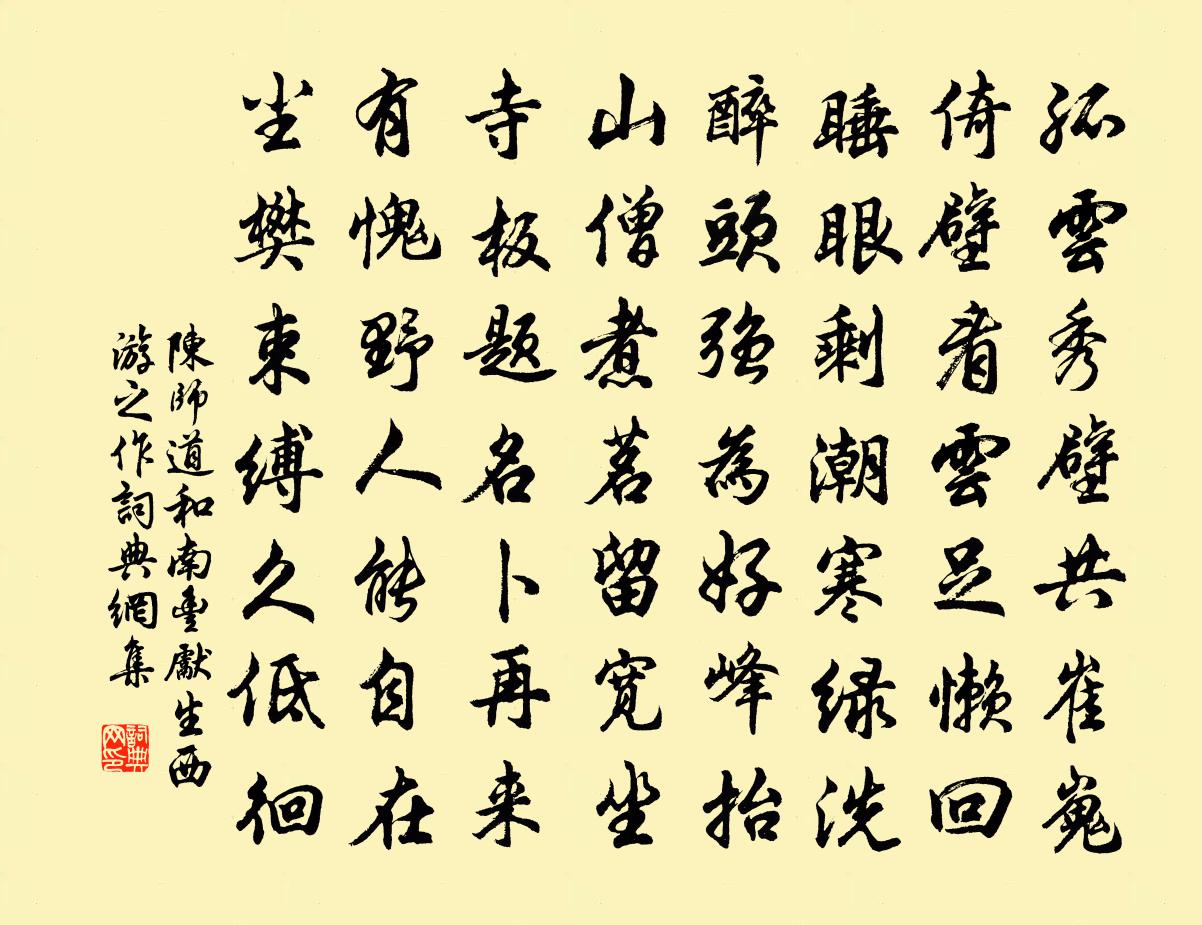 孤雲秀壁共崔嵬
倚壁看雲足懶回
睡眼剩潮寒緑洗
醉頭強為好峰抬
山僧煮茗留寬坐
寺板題名卜再来
有愧野人能自在
尘樊束縛久低徊
陳師道和南豐獻生西
游之作詞典網集
詞典网印